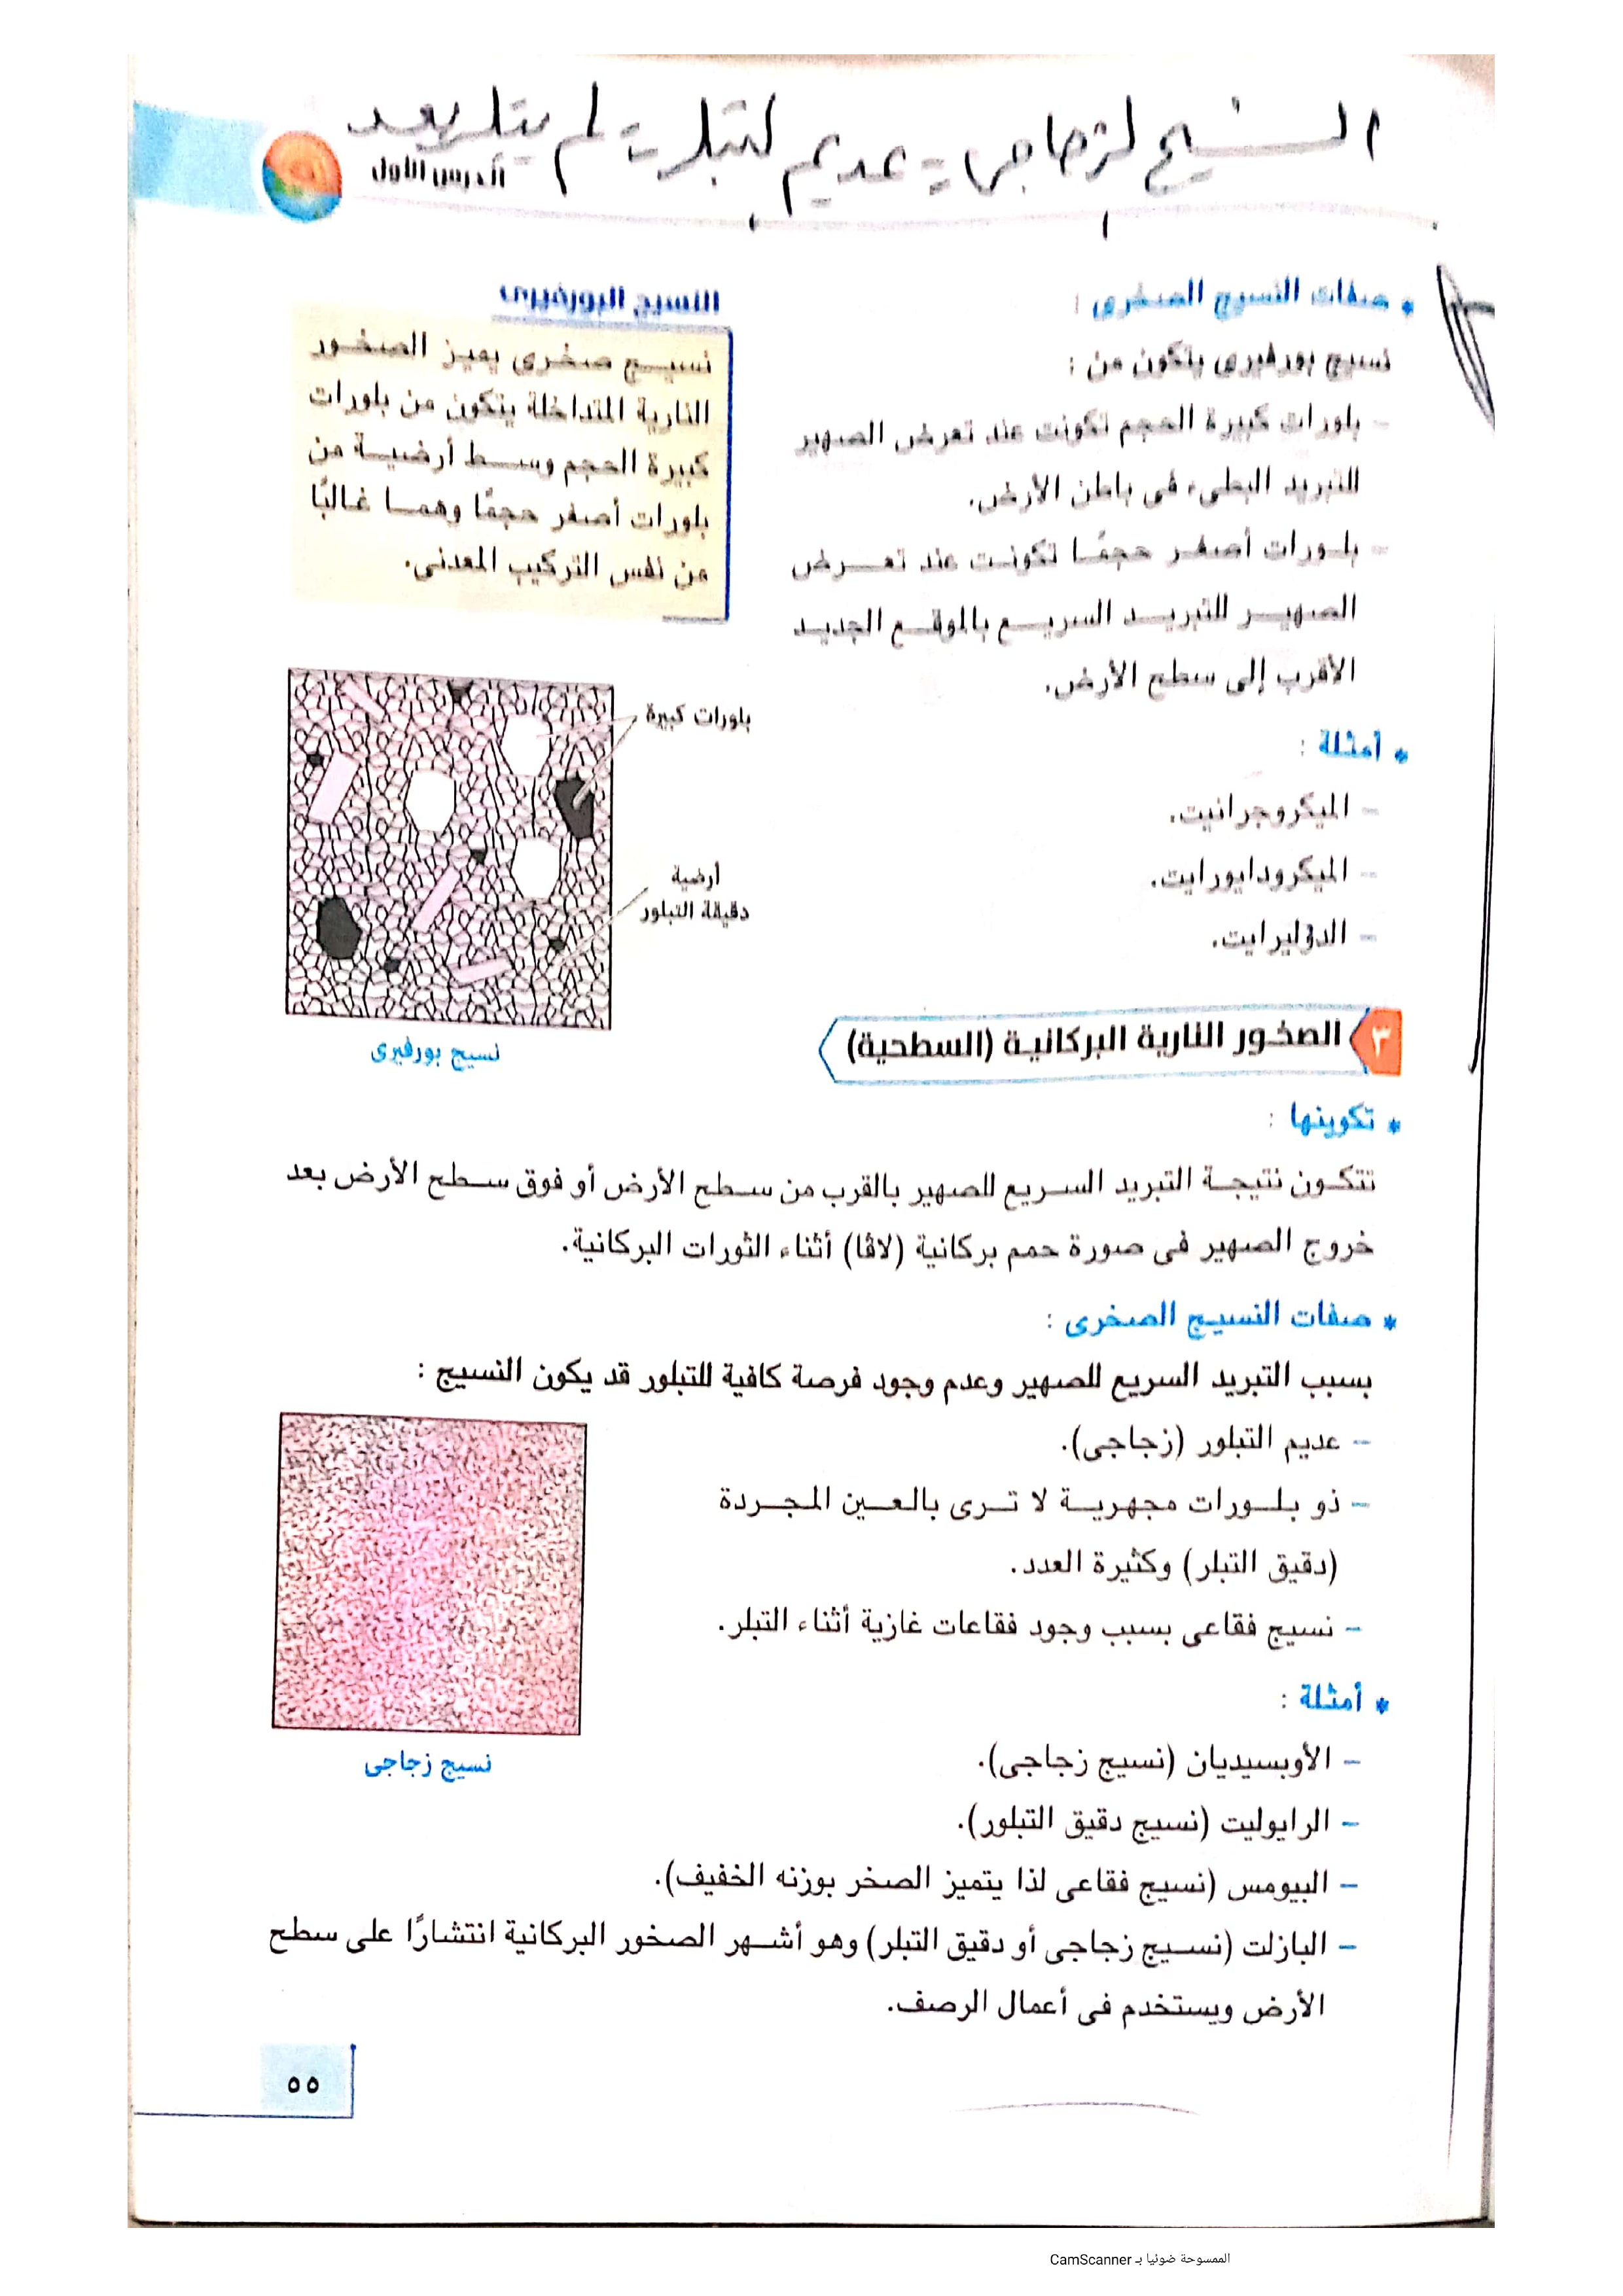 النسيج الزجاجى = عديم التبلر = لم يتبلر بعد
الدرس الأول
* صفات النسيج الصخرى :
نسيج بورفيرى يتكون من :
- بلورات كبيرة الحجم تكونت عند تعرض الصهير
للتبريد البطىء فى باطن الأرض.
- بلورات أصغر حجمًا تكونت عند تعرض
الصهير للتبريد السريع بالموقع الجديد
الأقرب إلى سطح الأرض.
* أمثلة :
- الميكروجرانيت.
- الميكرودايورايت.
- الدوليرايت.
النسيج البورفيرى
نسيج صخرى يميز الصخور
النارية المتداخلة يتكون من بلورات
كبيرة الحجم وسط أرضية من
بلورات أصغر حجمًا وهما غالبًا
من نفس التركيب المعدنى.
بلورات كبيرة
أرضية
دقيقة التبلور
نسيج بورفيرى
٣ الصخور النارية البركانية (السطحية)
* تكوينها :
تتكون نتيجة التبريد السريع للصهير بالقرب من سطح الأرض أو فوق سطح الأرض بعد
خروج الصهير فى صورة حمم بركانية (لاڤا) أثناء الثورات البركانية.
* صفات النسيج الصخرى :
بسبب التبريد السريع للصهير وعدم وجود فرصة كافية للتبلور قد يكون النسيج :
- عديم التبلور (زجاجى).
- ذو بلورات مجهرية لا ترى بالعين المجردة
(دقيق التبلر) وكثيرة العدد.
- نسيج فقاعى بسبب وجود فقاعات غازية أثناء التبلر.
* أمثلة :
- الأوبسيديان (نسيج زجاجى).
- الرايوليت (نسيج دقيق التبلور).
- البيومس (نسيج فقاعى لذا يتميز الصخر بوزنه الخفيف).
- البازلت (نسيج زجاجى أو دقيق التبلر) وهو أشهر الصخور البركانية انتشارًا على سطح
الأرض ويستخدم فى أعمال الرصف.
نسيج زجاجى
٥٥
الممسوحة ضوئيا بـ CamScanner